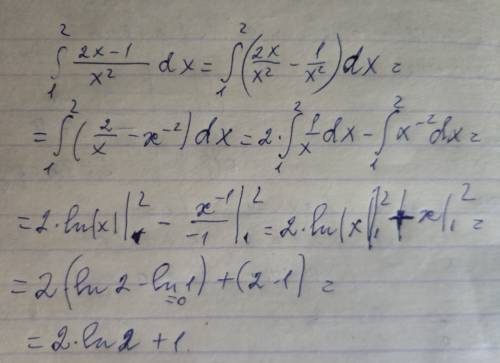 ∫₁² (2x-1)/x² dx = ∫₁² (2x/x² - 1/x²) dx =
= ∫₁² (2/x - x⁻²) dx = 2·∫₁² 1/x dx - ∫₁² x⁻² dx =
= 2·ln|x| |₁² - x⁻¹/-1 |₁² = 2·ln|x| |₁² + x |₁² =
= 2(ln 2 - ln 1) + (2-1) =
=0
= 2·ln 2 + 1.